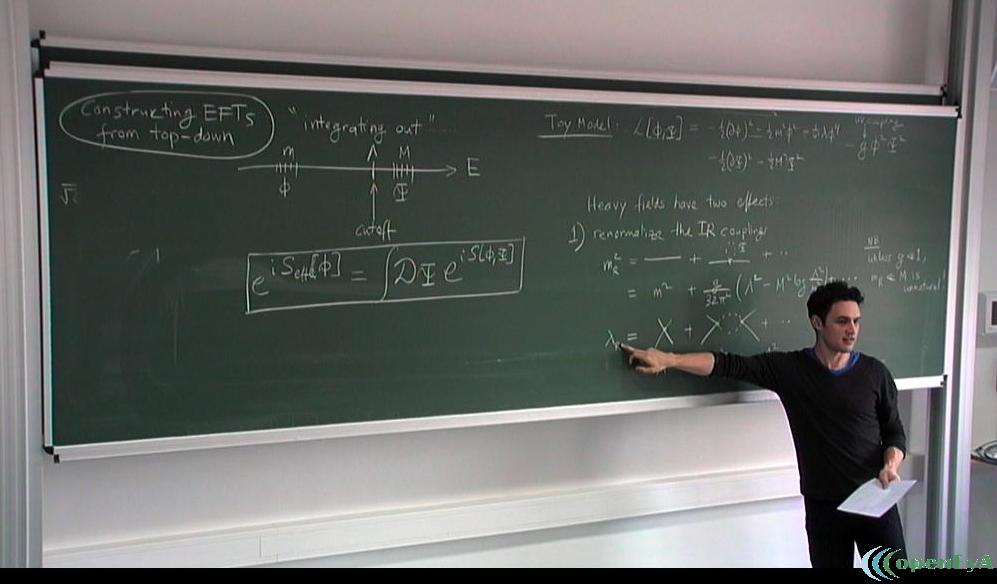 Constructing EFTs
from top-down
"integrating out"
m Λ M
E
ϕ Ψ
cutoff
e^{iS_eff[ϕ]} = ∫DΨ e^{iS[ϕ,Ψ]}
Toy Model: ℒ[ϕ,Ψ] = -½(∂ϕ)² - ½m²ϕ² - λϕ⁴ - gϕ²Ψ²
-½(∂Ψ)² - ½M²Ψ²
Heavy fields have two effects:
1) renormalize the IR couplings
m_R² = + + ..
= m² + g/32π² (Λ² - M² log
NB
unless g≪1,
m_R ≪ M is
unnatural!
λ_R = + + ...
openEyA